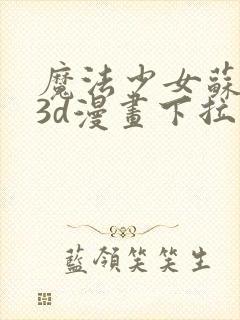 魔法少女蘇
3d漫畫下拉
藍領笑笑生